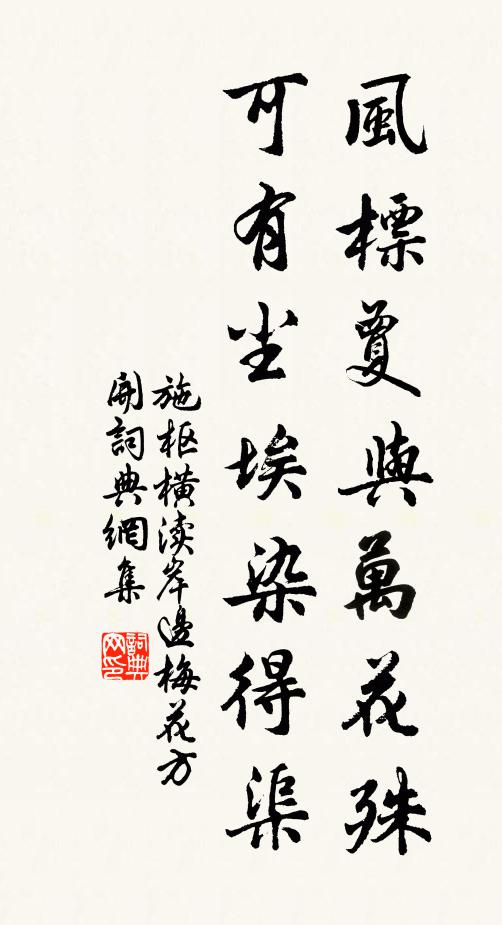 風標夐與萬花殊
可有尘埃染得渠
施枢橫渎岸邊梅花方
開詞典網集
詞典網印